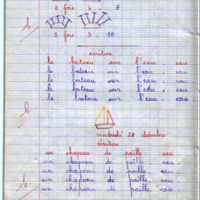 2 fois 4 = 8
2 fois 5 = 10
écriture
le bateau sur l'eau eau
le bateau sur l'eau eau
le bateau sur l'eau eau
le bateau sur l'eau eau
le bateau sur l'eau eau
b.
vendredi 20 décembre
écriture
un chapeau de paille eau
un chapeau de paille eau
un chapeau de paille eau
un chapeau de paille eau
un chapeau de paille eau
b.